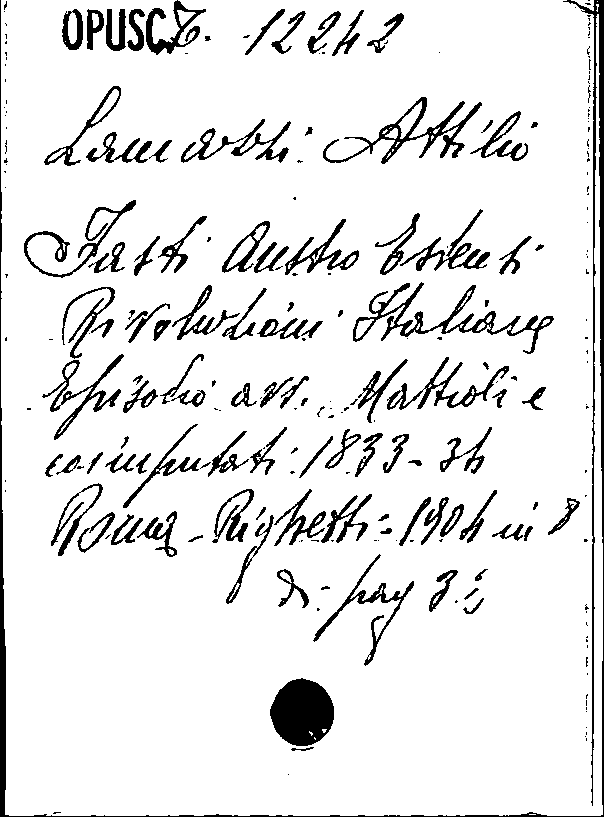 OPUSC. T. 12242
Attilio
Fasti Austro Estensi
Rivoluzioni Italiane
Episodio avv. Mattioli e
coimputati 1833-34
Roma - Righetti = 1904 in 8
di pag